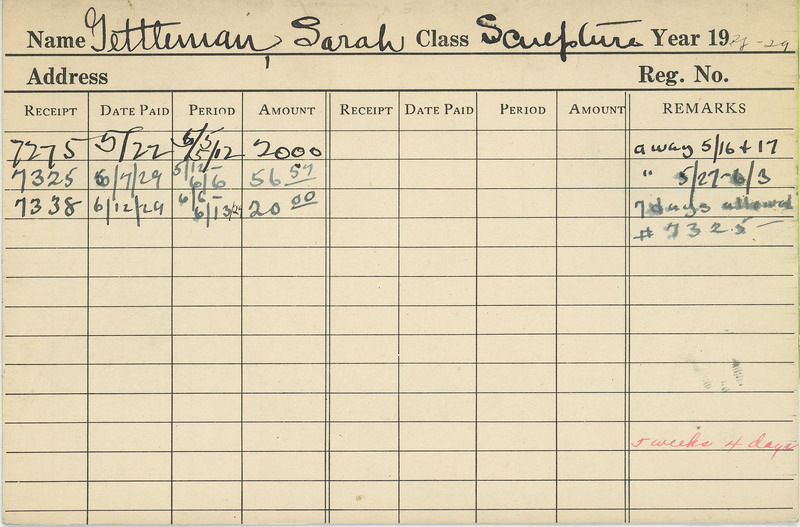 Name Gettleman, Sarah Class Sculpture Year 1928-29
Address Reg. No.
RECEIPT DATE PAID PERIOD AMOUNT RECEIPT DATE PAID PERIOD AMOUNT REMARKS
7275 5/22 5/5 5/12 2000 away 5/16 + 17
7325 6/7/29 5/12- 6/6 56 57 " 5/27-6/3
7338 6/12/29 6/6- 6/13/29 20 00 7 days allowed
# 7325
5 weeks 4 days